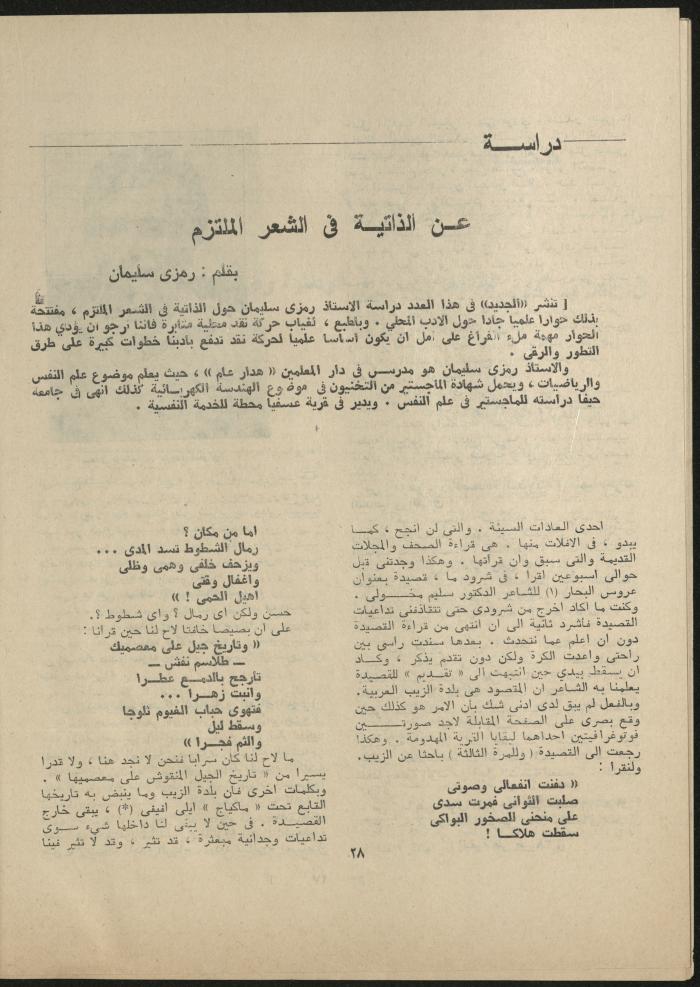 دراســـة
عــن الذاتيــة فى الشعر الملتزم
بقلم : رمزى سليمان
[ تنشر «الجديد» فى هذا العدد دراسة الاستاذ رمزى سليمان حول الذاتية فى الشعر الملتزم ، مفتتحة
بذلك حوارا علميا جادا حول الادب المحلي . وبالطبع ، لغياب حركة نقد محلية مثابرة فاننا نرجو ان يؤدي هذا
الحوار مهمة ملء الفراغ على امل ان يكون اساسا علميا لحركة نقد تدفع بادبنا خطوات كبيرة على طرق
التطور والرقى .
والاستاذ رمزى سليمان هو مدرس فى دار المعلمين « هدار عام » ، حيث يعلم موضوع علم النفس
والرياضيات ، ويحمل شهادة الماجستير من التخنيون فى موضوع الهندسة الكهربائية كذلك انهى فى جامعة
حيفا دراسته للماجستير فى علم النفس . ويدير فى قرية عسفيا محطة للخدمة النفسية .
احدى العادات السيئة . والتى لن انجح ، كمــا
يبدو ، فى الافلات منها . هى قراءة الصحف والمجلات
القديمة والتى سبق وان قرأتها . وهكذا وجدتنى قبل
حوالى اسبوعين اقرأ ، فى شرود ما ، قصيدة بعنوان
عروس البحار (١) للشاعر الدكتور سليم مخــولى .
وكنت ما اكاد اخرج من شرودى حتى تتقاذفنى تداعيات
القصيدة فأشرد ثانية الى ان انتهى من قراءة القصيدة
دون ان اعلم عما تتحدث . بعدها سندت راسى بين
راحتى واعدت الكرة ولكن دون تقدم يذكر ، وكــاد
ان يسقط بيدي حين انتبهت الى « تقديم » للقصيدة
يعلمنا به الشاعر ان المقصود هى بلدة الزيب العربية.
وبالفعل لم يبق لدى ادنى شك بأن الامر هو كذلك حين
وقع بصرى على الصفحة المقابلة لاجد صورتـــين
فوتوغرافيتين احداهما لبقايا القرية المهدومة . وهكذا
رجعت الى القصيدة ( وللمرة الثالثة ) باحثا عن الزيب.
ولنقرأ :
« دفنت انفعالى وصوتى
صلبت الثوانى فمرت سدى
على منحنى الصخور البواكى
سقطت هلاكــا !
اما من مكان ؟
رمال الشطوط تسد المدى ...
ويزحف خلفى وهمى وظلى
واغفال وقتى
اهيل الحمى ! »
حسن ولكن اى رمال ؟ واى شطوط ؟.
على ان بصيصا خافتا لاح لنا حين قرانا :
« وتاريخ جيل على معصميك
ــ طلاسم نقش ــ
تأرجح بالدمــع عطــرا
وانبت زهــرا ...
فتهوى حباب الغيوم ثلوجا
وسقط ليل
والثم فجــرا »
ما لاح لنا كان سرابا فنحن لا نجد هنا ، ولا قدرا
يسيرا من « تاريخ الجيل المنقوش على معصميها » .
وبكلمات اخرى فان بلدة الزيب وما ينبض به تاريخها
القابع تحت « ماكياج » ايلى افيفى (*) ، يبقى خارج
القصيــدة . فى حين لا يبقى لنا داخلها شيء ســوى
تداعيات وجدانية مبعثرة ، قد تثير ، وقد لا تثير فينا
٢٨